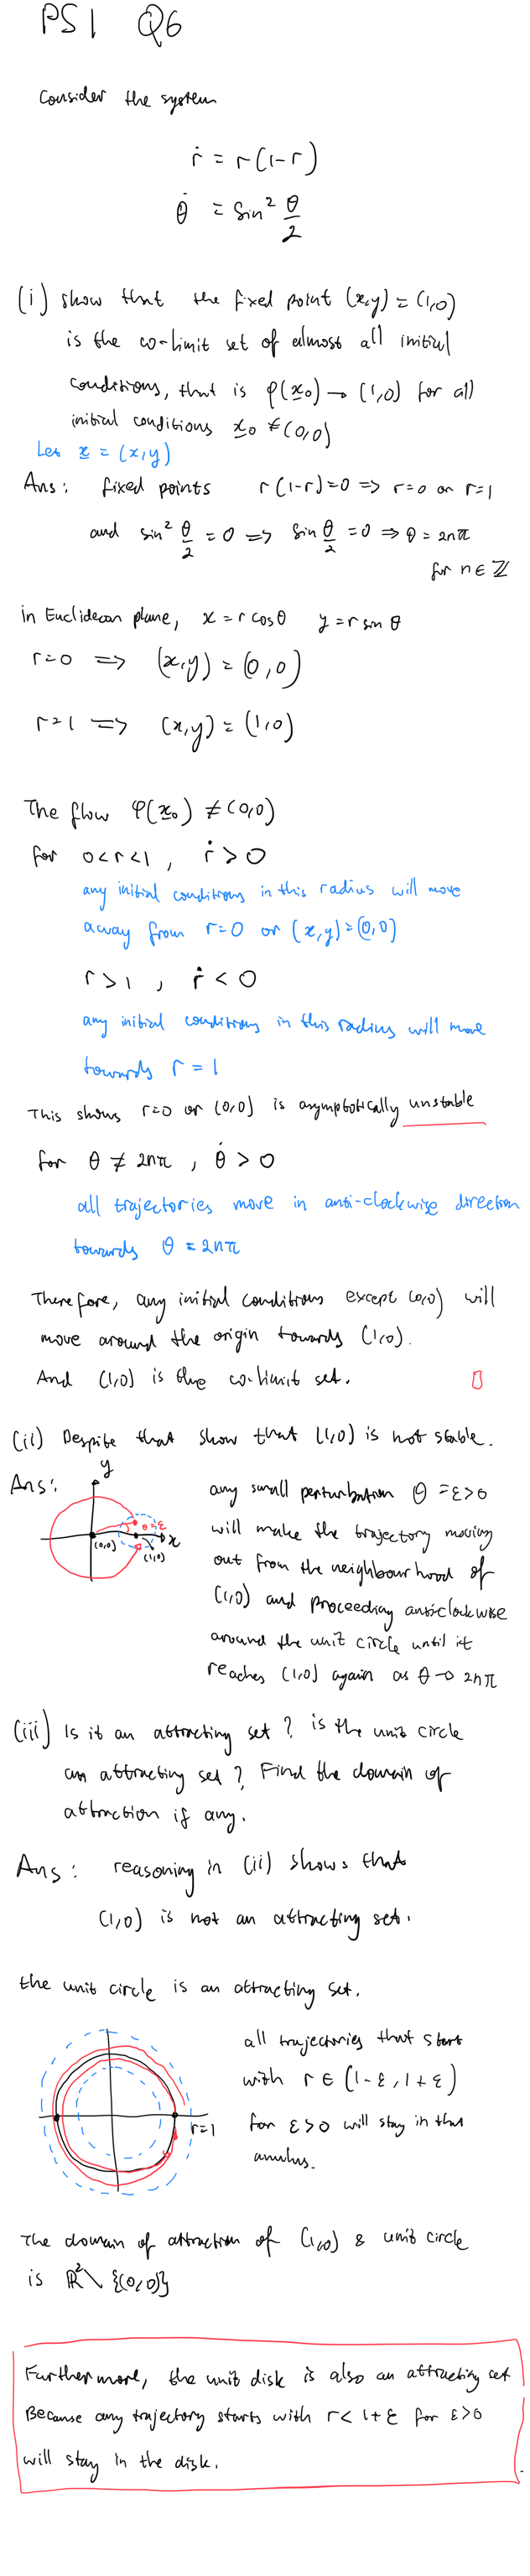 PS1 Q6
Consider the system
ṙ = r(1-r)
θ̇ = Sin² θ/2
(i) show that the fixed point (x,y) = (1,0)
is the ω-limit set of almost all initial
conditions, that is φ(x₀) → (1,0) for all
initial conditions x₀ ≠ (0,0)
Let x = (x,y)
Ans: fixed points r(1-r)=0 => r=0 or r=1
and sin² θ/2 = 0 => Sin θ/2 = 0 => θ = 2nπ
for n ∈ ℤ
in Euclidean plane, x = r cosθ y = r sin θ
r=0 => (x,y) = (0,0)
r=1 => (x,y) = (1,0)
The flow φ(x₀) ≠ (0,0)
for 0<r<1, ṙ > 0
any initial conditions in this radius will move
away from r=0 or (x,y)=(0,0)
r>1, ṙ < 0
any initial conditions in this radius will move
towards r = 1
This shows r=0 or (0,0) is asymptotically unstable
for θ ≠ 2nπ, θ̇ > 0
all trajectories move in anti-clockwise direction
towards θ = 2nπ
Therefore, any initial conditions except (0,0) will
move around the origin towards (1,0).
And (1,0) is the ω-limit set.
(ii) Despite that show that (1,0) is not stable.
Ans:
y
θ=ε
x
(0,0)
(1,0)
any small perturbation θ = ε>0
will make the trajectory moving
out from the neighbourhood of
(1,0) and proceeding anti-clockwise
around the unit circle until it
reaches (1,0) again as θ → 2nπ
(iii) Is it an attracting set? is the unit circle
an attracting set? Find the domain of
attraction if any.
Ans: reasoning in (ii) shows that
(1,0) is not an attracting set.
the unit circle is an attracting set.
all trajectories that start
with r ∈ (1-ε, 1+ε)
for ε>0 will stay in that
annulus.
r=1
The domain of attraction of (1,0) & unit circle
is ℝ² \ {(0,0)}
Furthermore, the unit disk is also an attracting set
Because any trajectory starts with r< 1+ε for ε>0
will stay in the disk.